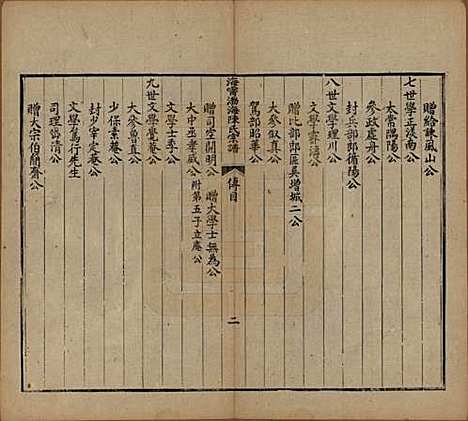 贈給諫風山公
七世學正淺南公
太常隅陽公
參政虛舟公
封兵部郎循陽公
八世文學理川公
文學霽濤公
贈比部郎區吳增城二公
大參叙真公
駕部昭華公
海寧渤海陳氏宗譜 傳目 二
贈司空開明公 贈大學士無為公
大中丞孝威公 附第五子立庵公
文學士季公
九世文學覺菴公
大參魯直公
少保素菴公
封少宰定菴公
文學篤行先生
司理岱清公
贈大宗伯簡齋公